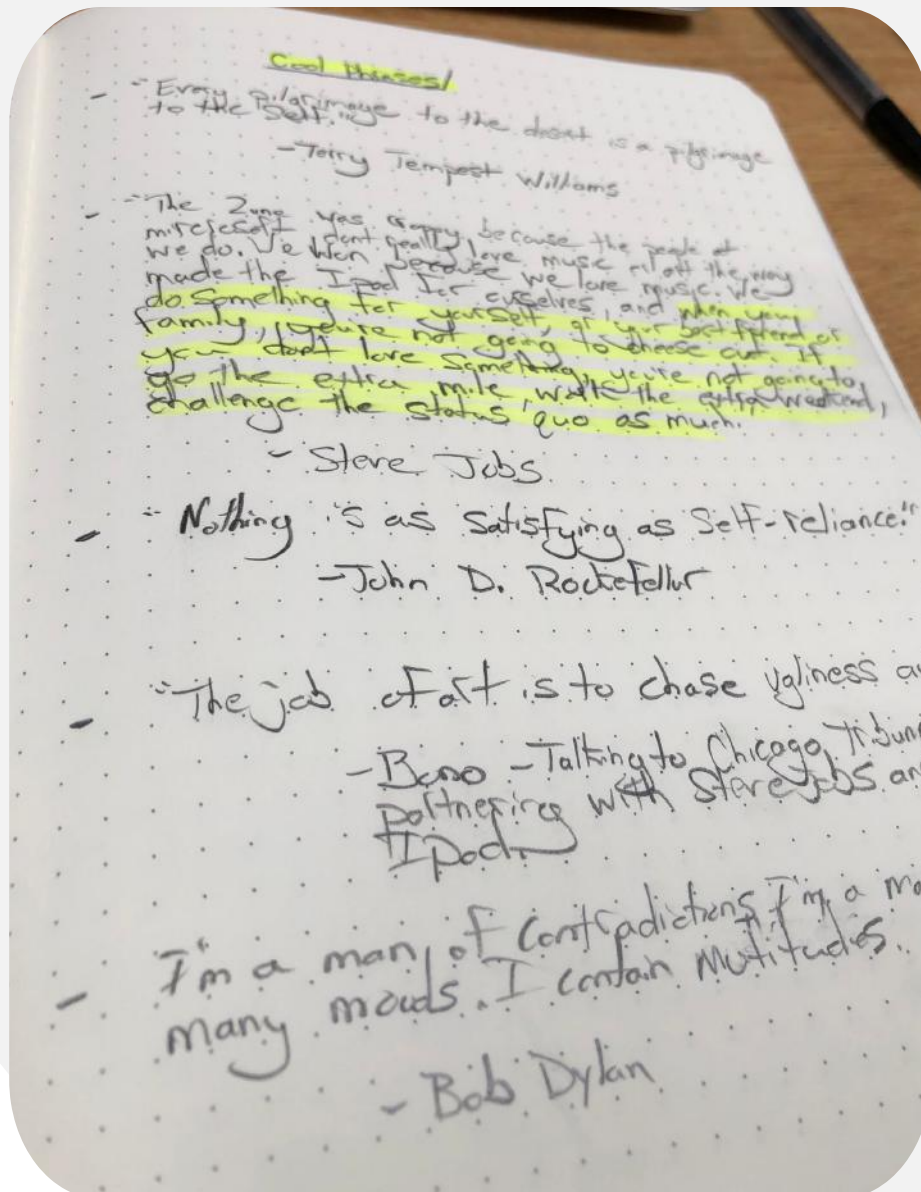 Cool Phrases/
- "Every pilgrimage to the desert is a pilgrimage
to the self."
-Terry Tempest Williams
- "The Zune was crappy because the people at
microsoft don't really love music or art the way
we do. We won because we love music. We
made the Ipod for ourselves, and when you
do something for yourself, or your best friend or
family, you're not going to cheese out. If
you don't love something, you're not going to
go the extra mile, work the extra weekend,
challenge the status quo as much.
- Steve Jobs
- "Nothing is as satisfying as Self-reliance!"
-John D. Rockefeller
- "The job of art is to chase ugliness
-Bono - Talking to Chicago Tribun
partnering with Steve Jobs
Ipod.
- I'm a man of contradictions I'm a
many moods. I contain Mutitudes.
- Bob Dylan